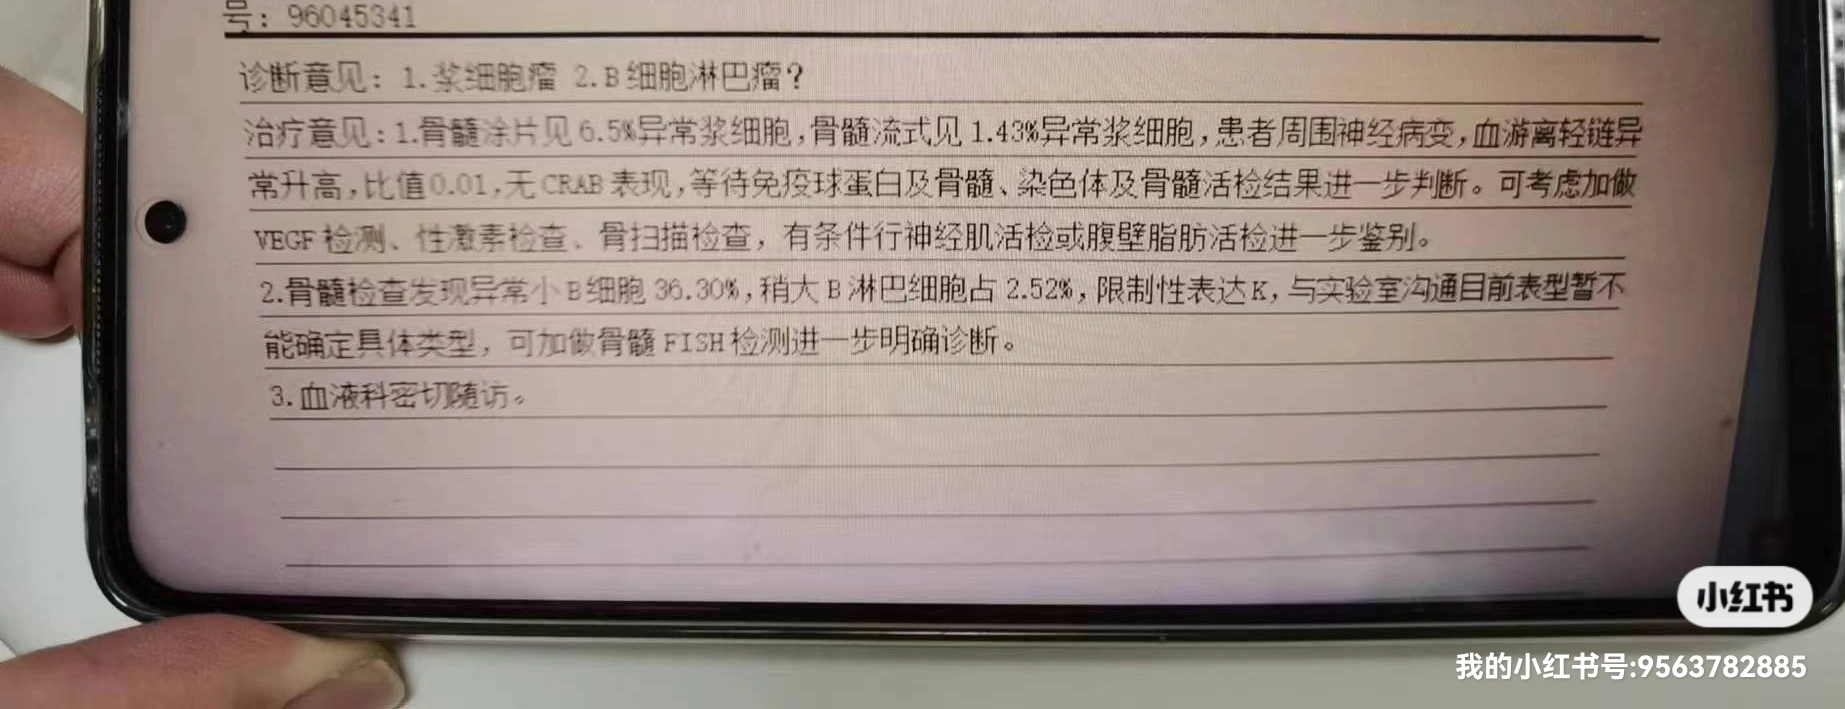 号: 96045341
诊断意见: 1.浆细胞瘤 2.B细胞淋巴瘤?
治疗意见:1.骨髓涂片见6.5%异常浆细胞,骨髓流式见1.43%异常浆细胞,患者周围神经病变,血游离轻链异
常升高,比值0.01,无CRAB表现,等待免疫球蛋白及骨髓、染色体及骨髓活检结果进一步判断。可考虑加做
VEGF检测、性激素检查、骨扫描检查，有条件行神经肌活检或腹壁脂肪活检进一步鉴别。
2.骨髓检查发现异常小B细胞36.30%,稍大B淋巴细胞占2.52%,限制性表达K,与实验室沟通目前表型暂不
能确定具体类型，可加做骨髓FISH检测进一步明确诊断。
3.血液科密切随访。
小红书
我的小红书号:9563782885